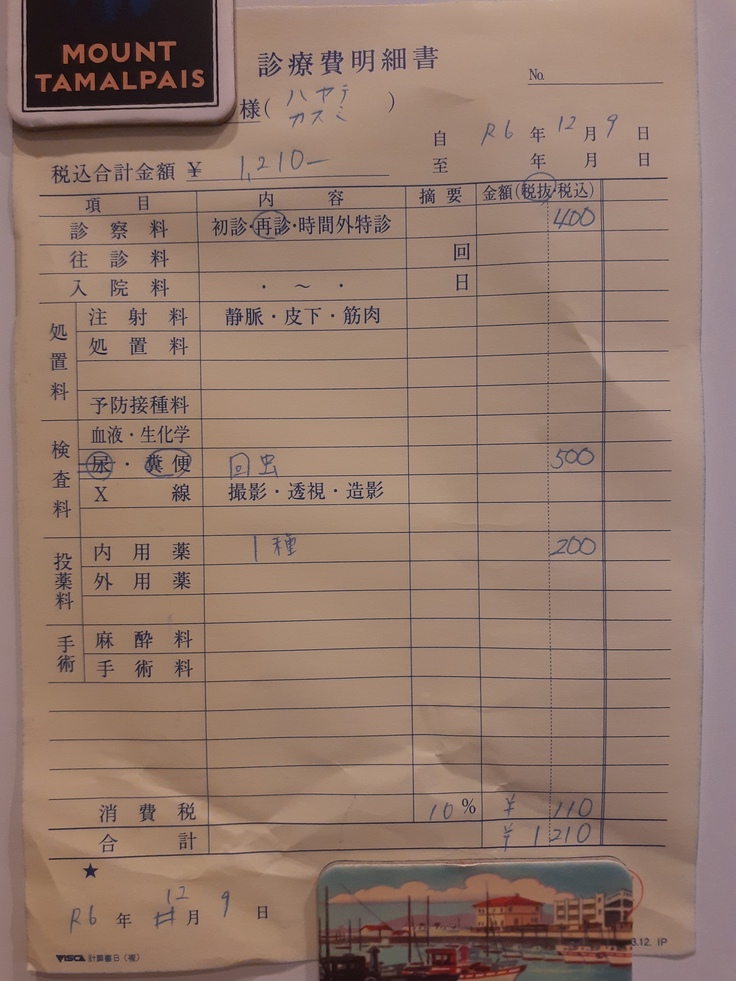 MOUNT
TAMALPAIS
診療費明細書
No.
様( ハヤテ
カスミ )
自 R6 年 12 月 9 日
至 年 月 日
税込合計金額 ¥ 1,210-
項目 内容 摘要 金額(税抜・税込)
診察料 初診・再診・時間外特診 400
往診料 回
入院料 ・ ~ ・ 日
処置料
注射料 静脈・皮下・筋肉
処置料
予防接種料
検査料
血液・生化学
尿・糞便 回虫 500
X線 撮影・透視・造影
投薬料
内用薬 1種 200
外用薬
手術
麻酔料
手術料
消費税 10% ¥ 110
合計 ¥ 1210
★
R6 年 12 月 9 日
VISCA 計算書B(複)
3.12. IP